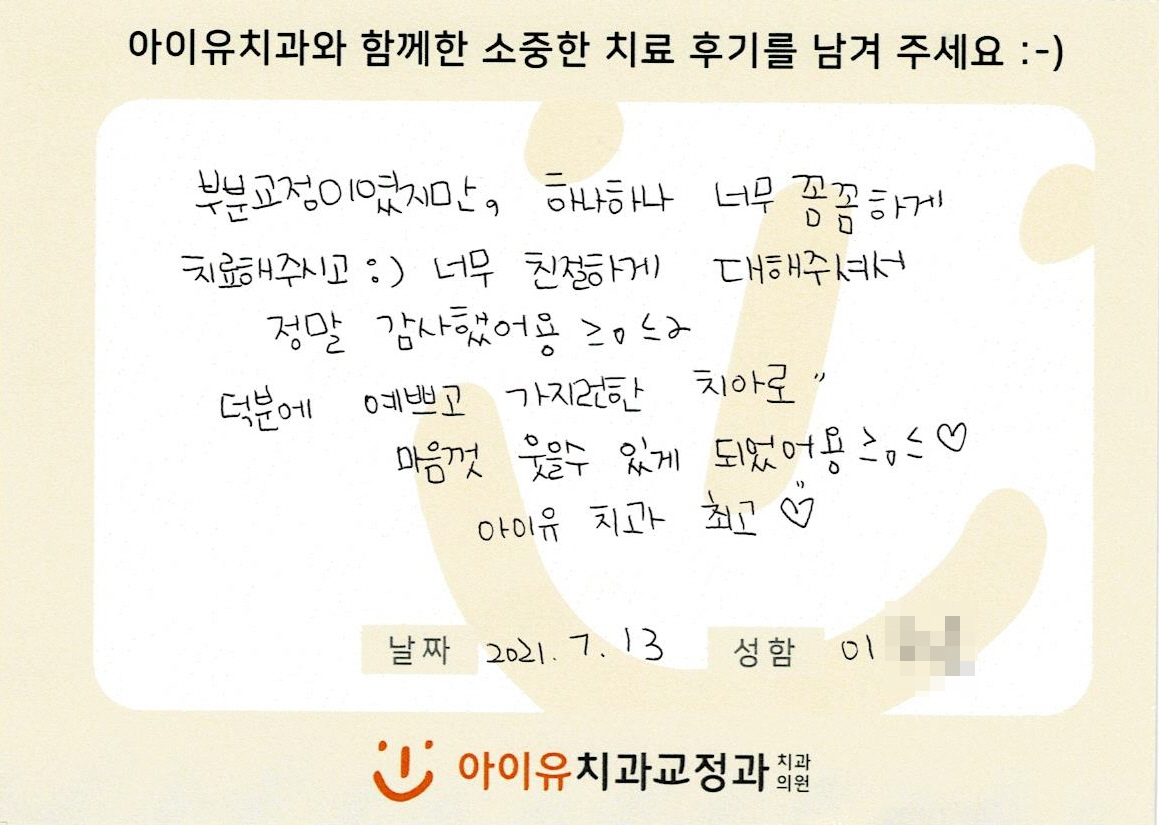 아이유치과와 함께한 소중한 치료 후기를 남겨 주세요 :-)
부분교정이였지만, 하나하나 너무 꼼꼼하게
치료해주시고 :) 너무 친절하게 대해주셔서
정말 감사했어용 ≥o≤
덕분에 예쁘고 가지런한 치아로"
마음껏 웃을수 있게 되었어용 ≥o≤♡
아이유 치과 최고♡
날짜 2021. 7. 13 성함 이
아이유치과교정과 치과의원